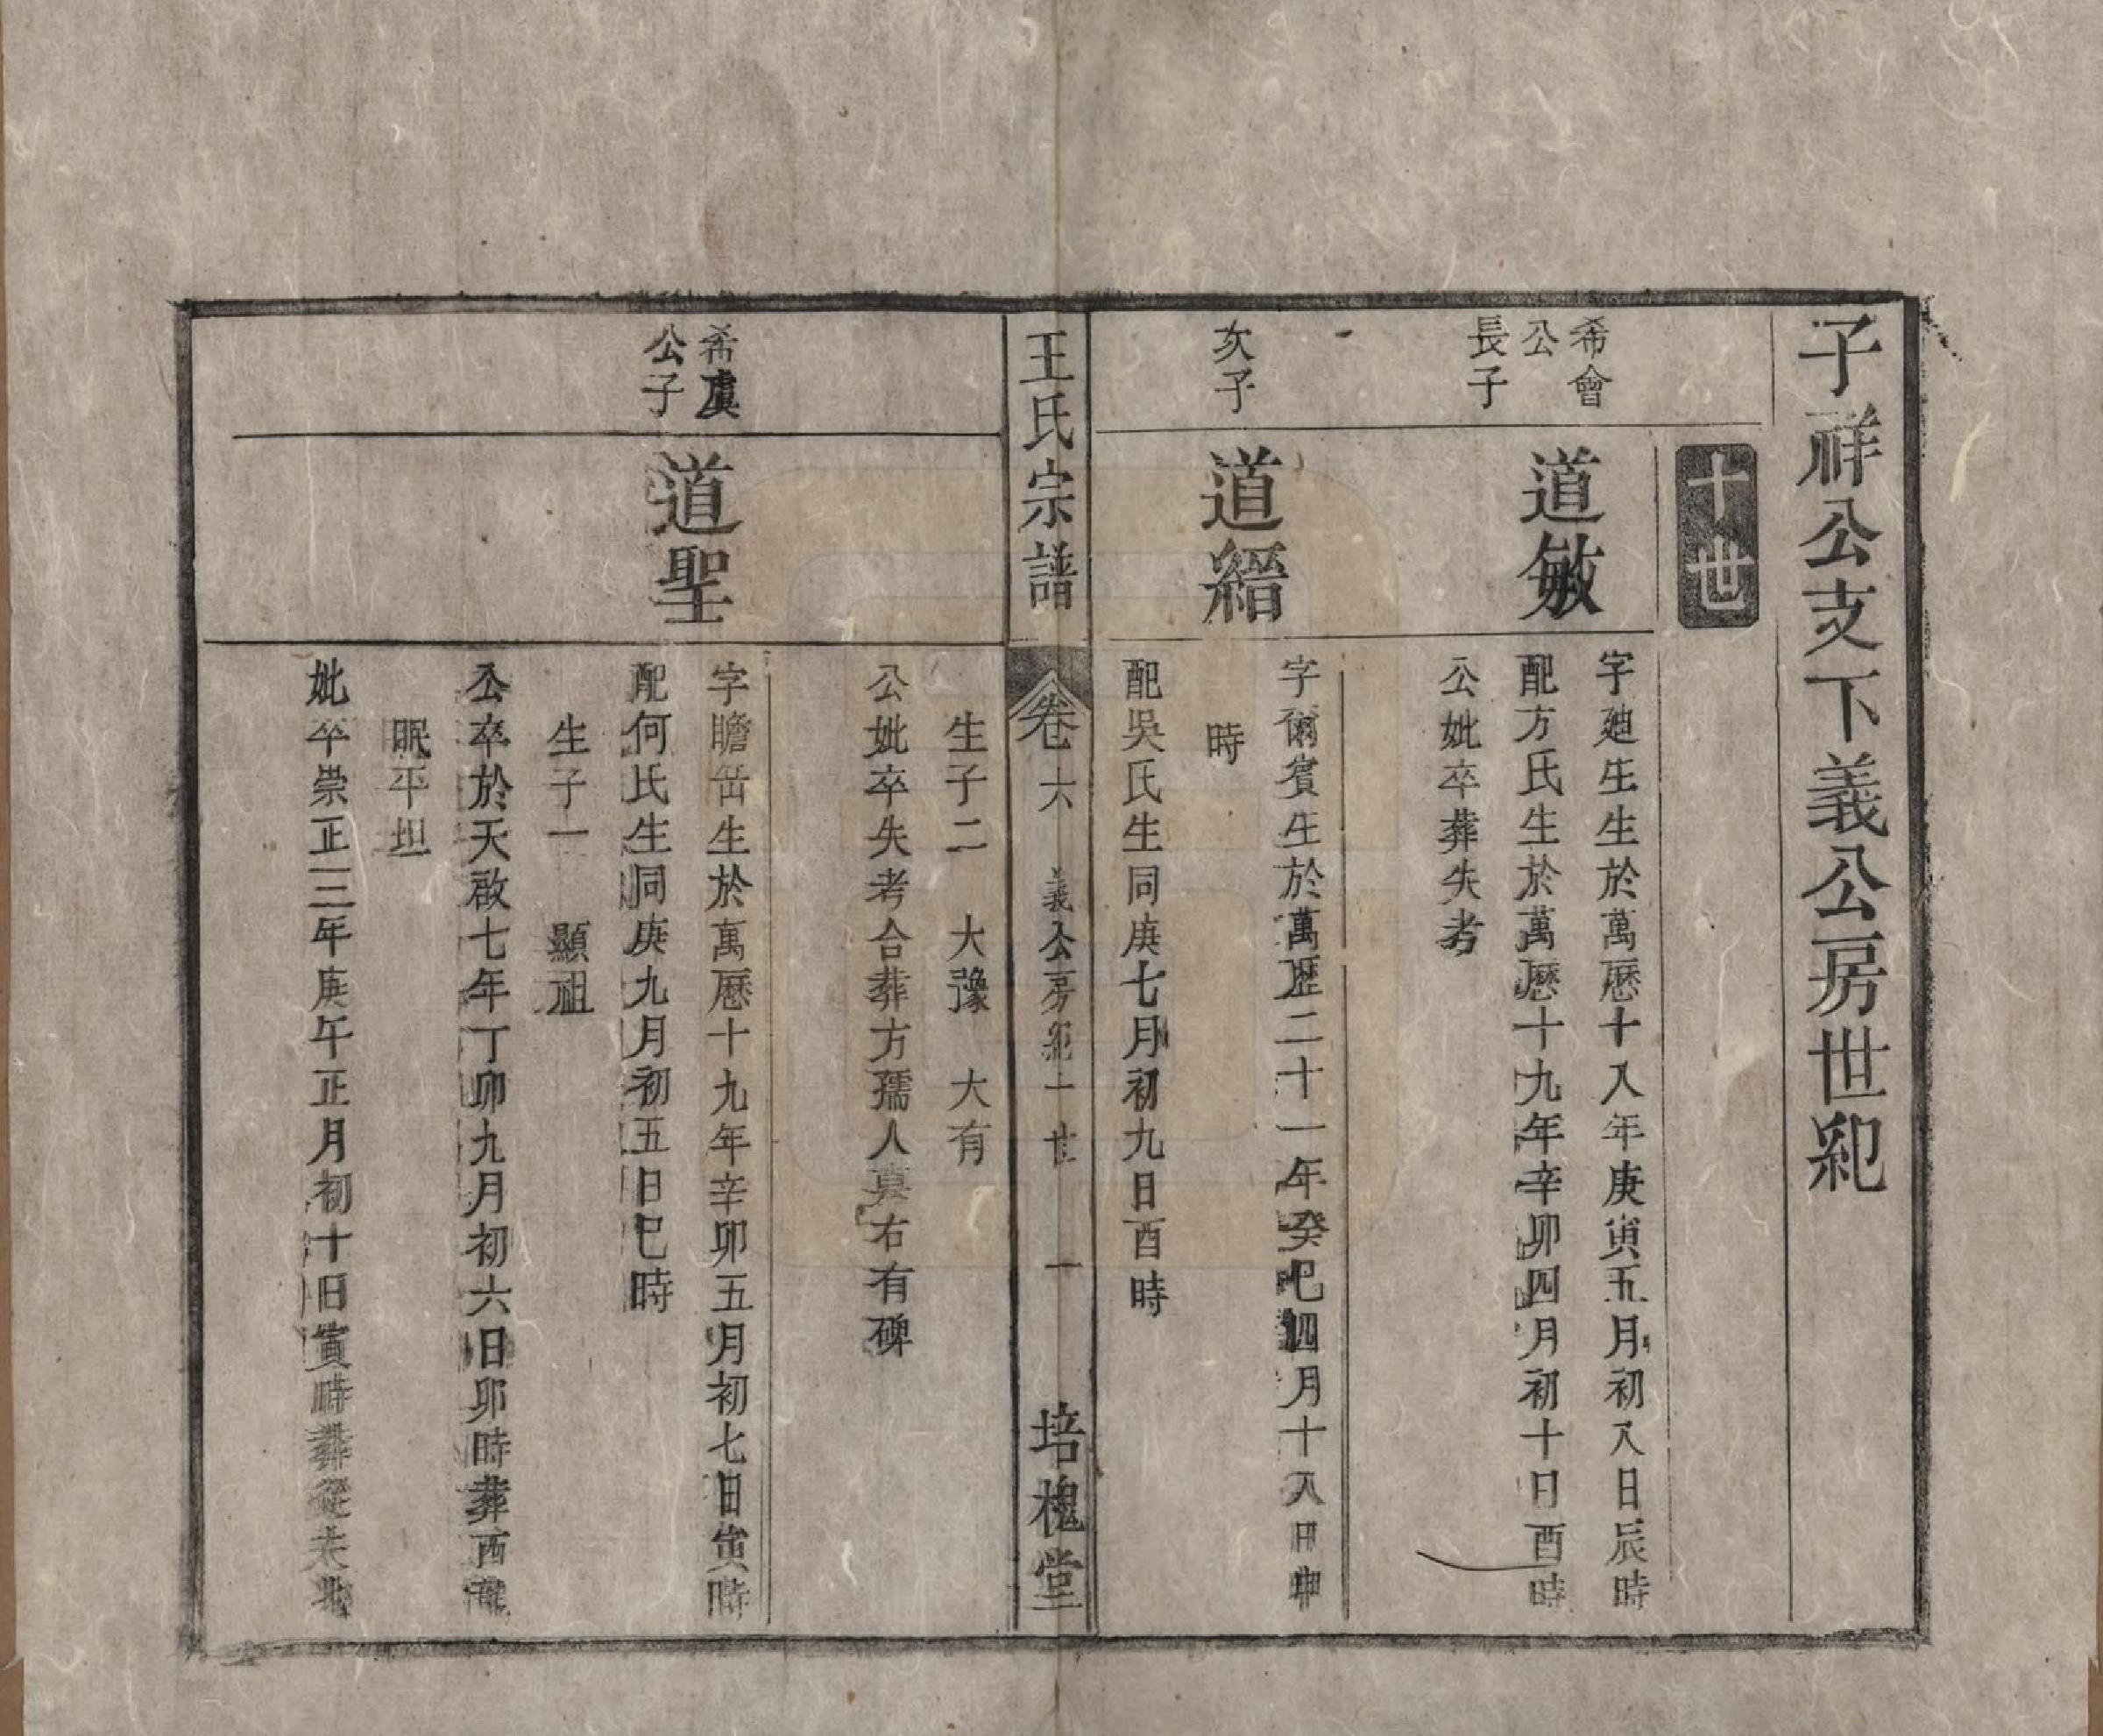 子祥公支下義公房世紀
十世
希會
公
長子
道敏
字廸生生於萬曆十八年庚寅五月初八日辰時
配方氏生於萬曆十九年辛卯四月初十日酉時
公妣卒葬失考
次子
道縉
字爾賓生於萬歷二十一年癸巳四月十八日申
時
配吳氏生同庚七月初九日酉時
王氏宗譜
卷六
義公房紀十世
一
培槐堂
生子二 大豫 大有
公妣卒失考合葬方孺人真右有碑
希虞
公子
道聖
字瞻岳生於萬曆十九年辛卯五月初七日寅時
配何氏生同庚九月初五日巳時
生子一 顯祖
公卒於天啟七年丁卯九月初六日卯時葬西
眠平坦
妣卒崇正三年庚午正月初十日寅時葬從夫